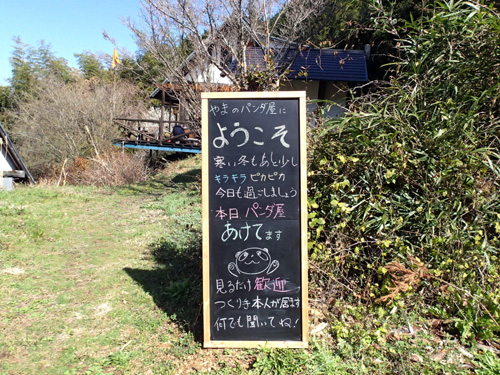 やまのパンダ屋に
ようこそ
寒い冬もあと少し
キラキラピカピカ
今日も過ごしましょう
本日 パンダ屋
あけてます
見るだけ歓迎
つくりき本人が居ます
何でも聞いてね!